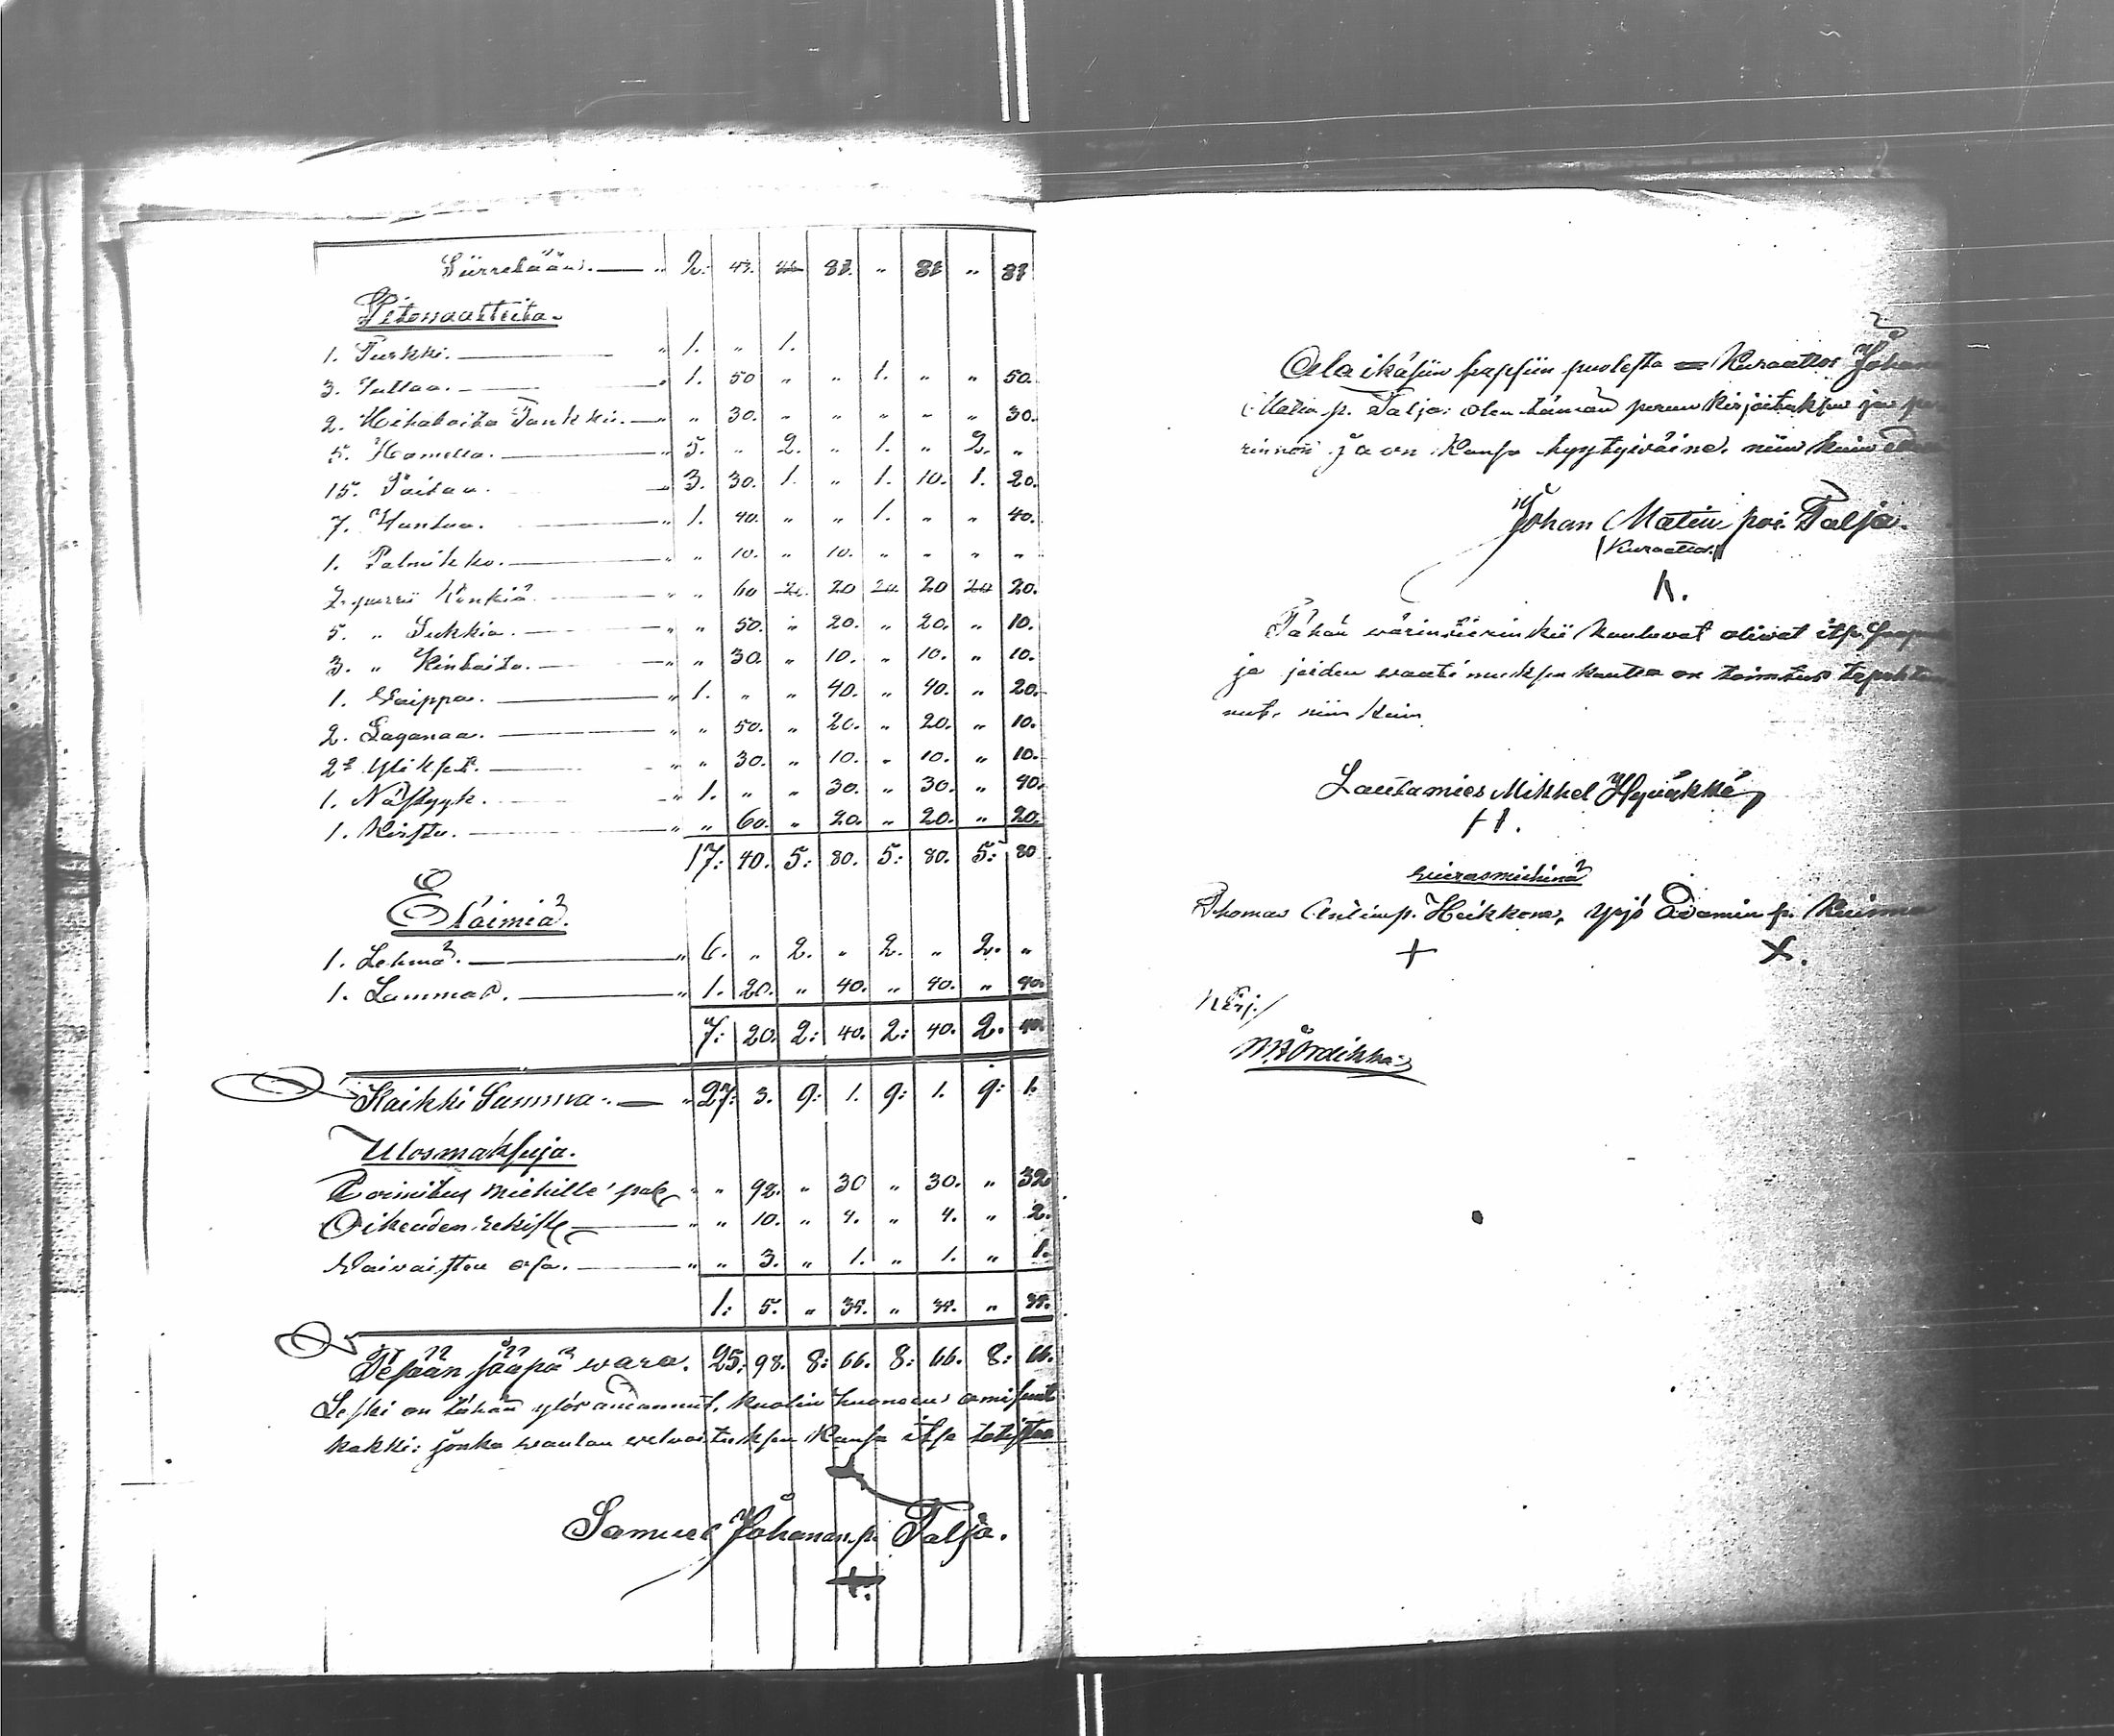 Siirretään. — " 2: 43. 82. " 82 " 82
Pitovaatteita.
1. Turkki. — " 1. " 1.
3. — " 1. 50 " " 1. " " 50.
2. Hihatoita — " " 30. " " " " " 30.
5. Hametta. — " 5. " 2. " 1. " 2. "
15. Paitaa. — " 3. 30. 1. " 1. 10. 1. 20.
7. Huntua. — " 1. 40. " " 1. " " 40.
1. Palmikko. — " " 10. " 10. " " " "
2. paria Kenkiä — " " 60 20 20 20
5. " Sukkia. — " " 50. " 20. " 20. " 10.
3. " Kintaita. — " " 30. " 10. " 10. " 10.
1. Waippa. — " 1. " " 40. " 40. " 20.
2. Laganaa. — " " 50. " 20. " 20. " 10.
" " 30. " 10. " 10. " 10.
1. — " 1. " " 30. " 30. " 40.
1. Kirstu. — " " 60. " 20. " 20. " 20.
17: 40. 5: 80. 5: 80. 5: 80
Eläimiä.
1. Lehmä. — " 6. " 2. " 2. " 2. "
1. Lammas. — " 1. 20. " 40. " 40. " 40.
7: 20. 2: 40. 2: 40. 2. 40.
Kaikki Summa. — " 27: 3. 9: 1. 9: 1. 9: 1.
Ulosmaksuja.
Toimitus miehille palk " " 92. " 30 " 30. " 32
Oikeuden rekist — " " 10. " 4. " 4. " 2.
Waivaisten osa. — " " 3. " 1. " 1. " 1.
1: 5. " 35. " 35. " 35.
Tesään jääpä wara. 25: 98. 8: 66. 8: 66. 8: 66.
Leski on tähän ylös andannut, kuolin huoneen omisuut
kakki: jonka waulan welvoituksen Kansa itse totistaa
Samuel Johanan p. Talja.
+.
Ala ikäsiin lapsiin puolesta = Kuraattor Johan
Matin p. Talja: olen tämän perun kirjoituksen ja
rinnon ja on Kansa tyytyiväine. niin kuin
Johan Matin poi. Talja.
(Kuraattor)
Tähän wärin kuuluvat oliwat
ja joiden waatimuksen kautta on toimitus tapahtu
nut. niin kuin
Lautamies Mikkel Hyväkkä
wierasmiehinä
Thomas Antinp. Heikkone, Yrjö Adamin p. Kuisma
+ X.
Kirj:/